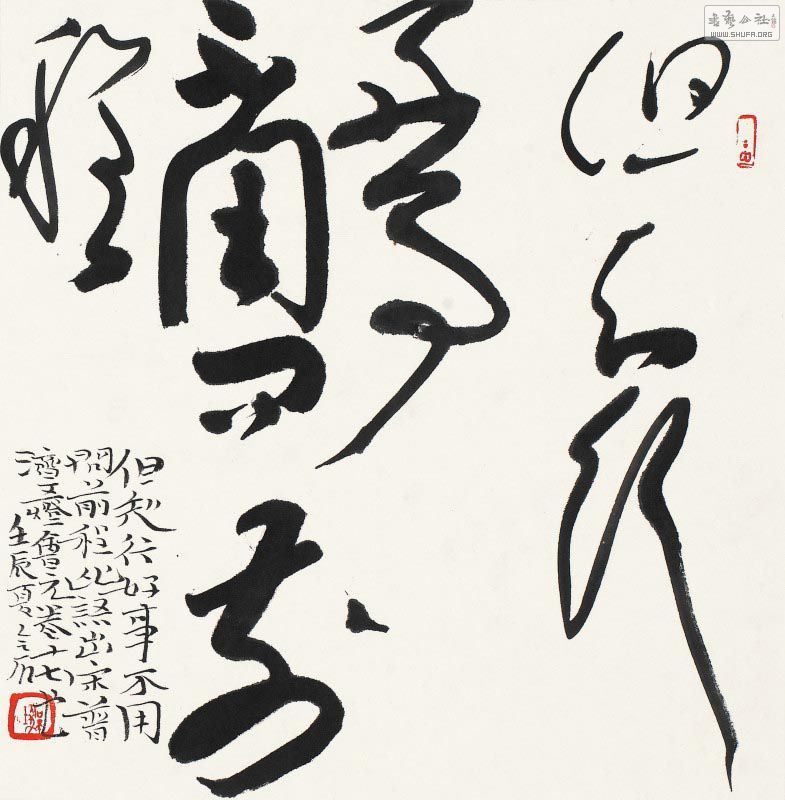 書藝公社
WWW.SHUFA.ORG
但知行
好事
不用問前
程
但知行好事不用
問前程此語出宋普
濟五燈會元卷十七
壬辰夏